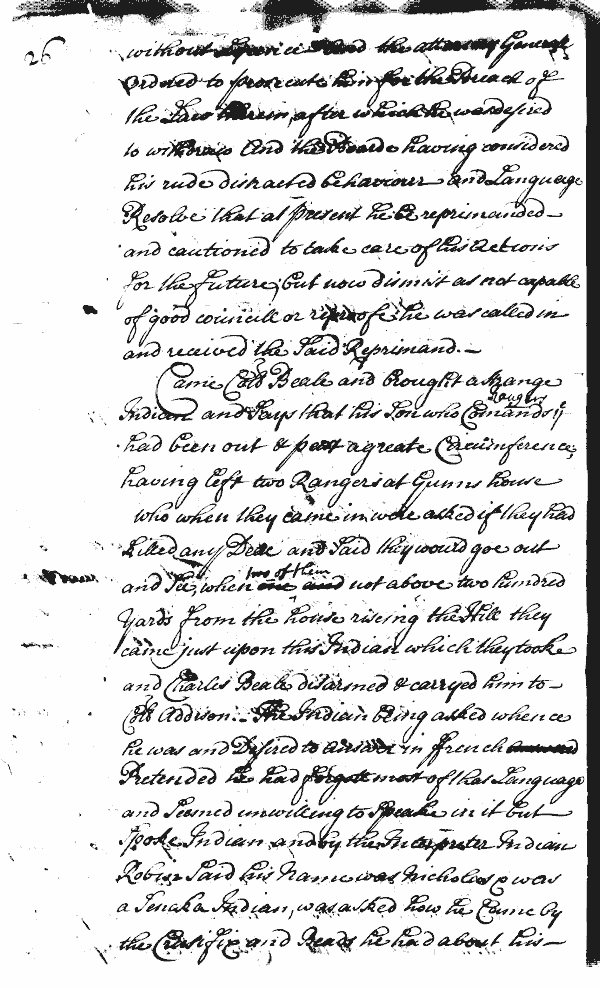 26
without Lycence and the attorney General
Ordred to prosecute him for the Breach of
the Law therein, after which he was desired
to withdraw And the Boarde having considered
his rude distracted behaviour and Language
Resolve that at present he be reprimanded
and cautioned to take care of his Actions
for the future, but now dismist as not capable
of good councill or reproofe, he was called in
and received the said Reprimand.
Came Coll Beale and brought a strange
Rangers
Indian and Says that his Son who Comands ye
had been out & past a greate Circumference,
having left two Rangers at Gunns house
who when they came in were asked if they had
killed any Dere and Said they would goe out
two of them
and See, when one and not above two hundred
Yards from the house rising the Hill they
came just upon this Indian which they tooke
and Charles Beale disarmed & carryed him to
Coll Addison. The Indian being asked whence
he was and Desired to answer in french
Pretended he had forgott most of that Language
and Seemed unwilling to Speake in it but
Spoke Indian and by the Interpreter Indian
Robin Said his Name was Nicholas & was
a Seneka Indian, was asked how he Came by
the Crusifix and Beads he had about his